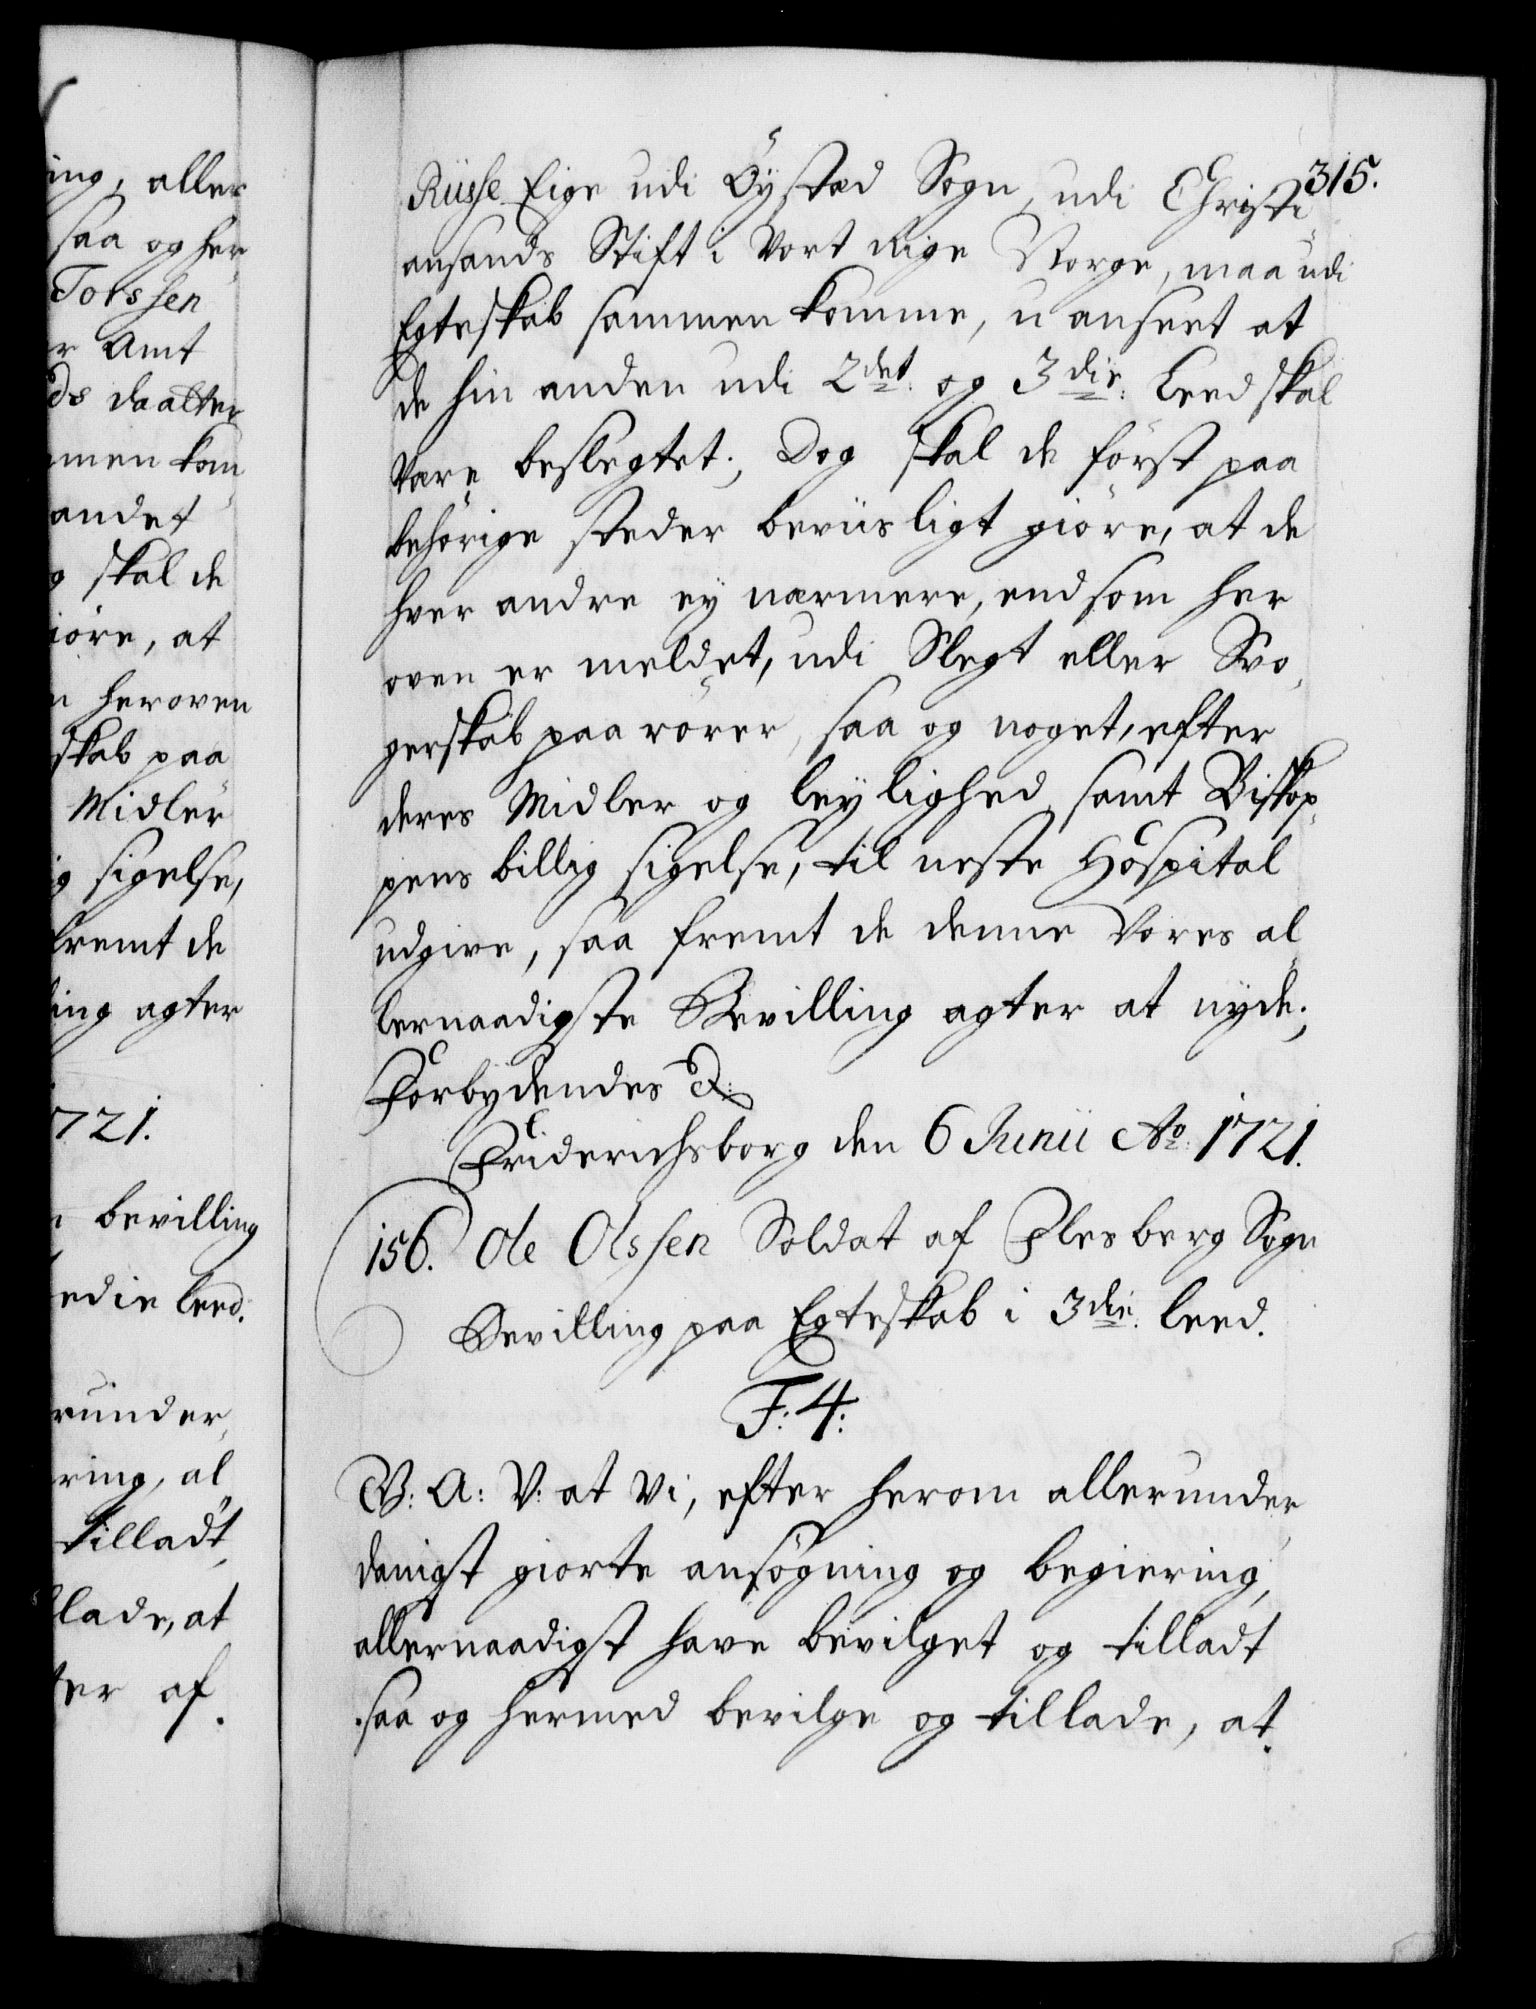 ing, aller
saa og her
Torssen
r Amt
ds daatter
men kom
andet
g skal de
iöre, at
n heroven
skab paa
Midler
ig sigelse,
fremt de
ling agter
1721.
n bevilling
edie leed.
runder,
ring, al
tilladt,
lade, at
ter af
315.
Rüsse Eige udi Öystad Sogn, udi Christi
ansands Stift i Vort Rige Norge, maa udi
Egteskab sammen komme, u anseet at
de hin anden udi 2det og 3die Leed skal
være beslegtet; Dog skal de först paa
behörige steder beviisligt giöre, at de
hver andre ey nærmere, end som her
oven er meldet, udi Slegt eller Svo
gerskab paa rörer, saa og noget, efter
deres Midler og leylighed, samt Biskop
pens billig sigelse, til neste Hospital
udgive, saa fremt de denne Vores al
lernaadigste Bevilling agter at nyde;
Forbydendes &
Friderichsborg den 6 Junii Ao 1721.
156. Ole Olssen Soldat af Flesberg Sogn
Bevilling paa Egteskab i 3die leed.
F: 4:
G. V: A: V: at Vi, efter herom allerunder
danigst giorte ansögning og begiering,
allernaadigst have bevilget og tilladt
saa og hermed bevilge og tillade, at